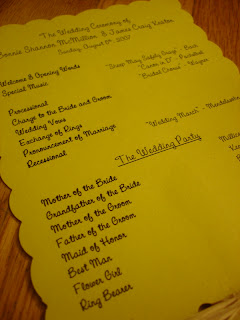 The Wedding Ceremony of
Bonnie Shannon McMillian & James Craig Keaton
Sunday, August 5th, 2007
Welcome & Opening Words
Special Music "Sheep May Safely Graze" - Bach
"Canon in D" - Pachelbel
Processional "Bridal Chorus" - Wagner
Charge to the Bride and Groom
Wedding Vows
Exchange of Rings
Pronouncement of Marriage
Recessional "Wedding March" - Mendelssohn
The Wedding Party
Mother of the Bride
Grandfather of the Bride
Mother of the Groom
Father of the Groom
Maid of Honor
Best Man
Flower Girl
Ring Bearer